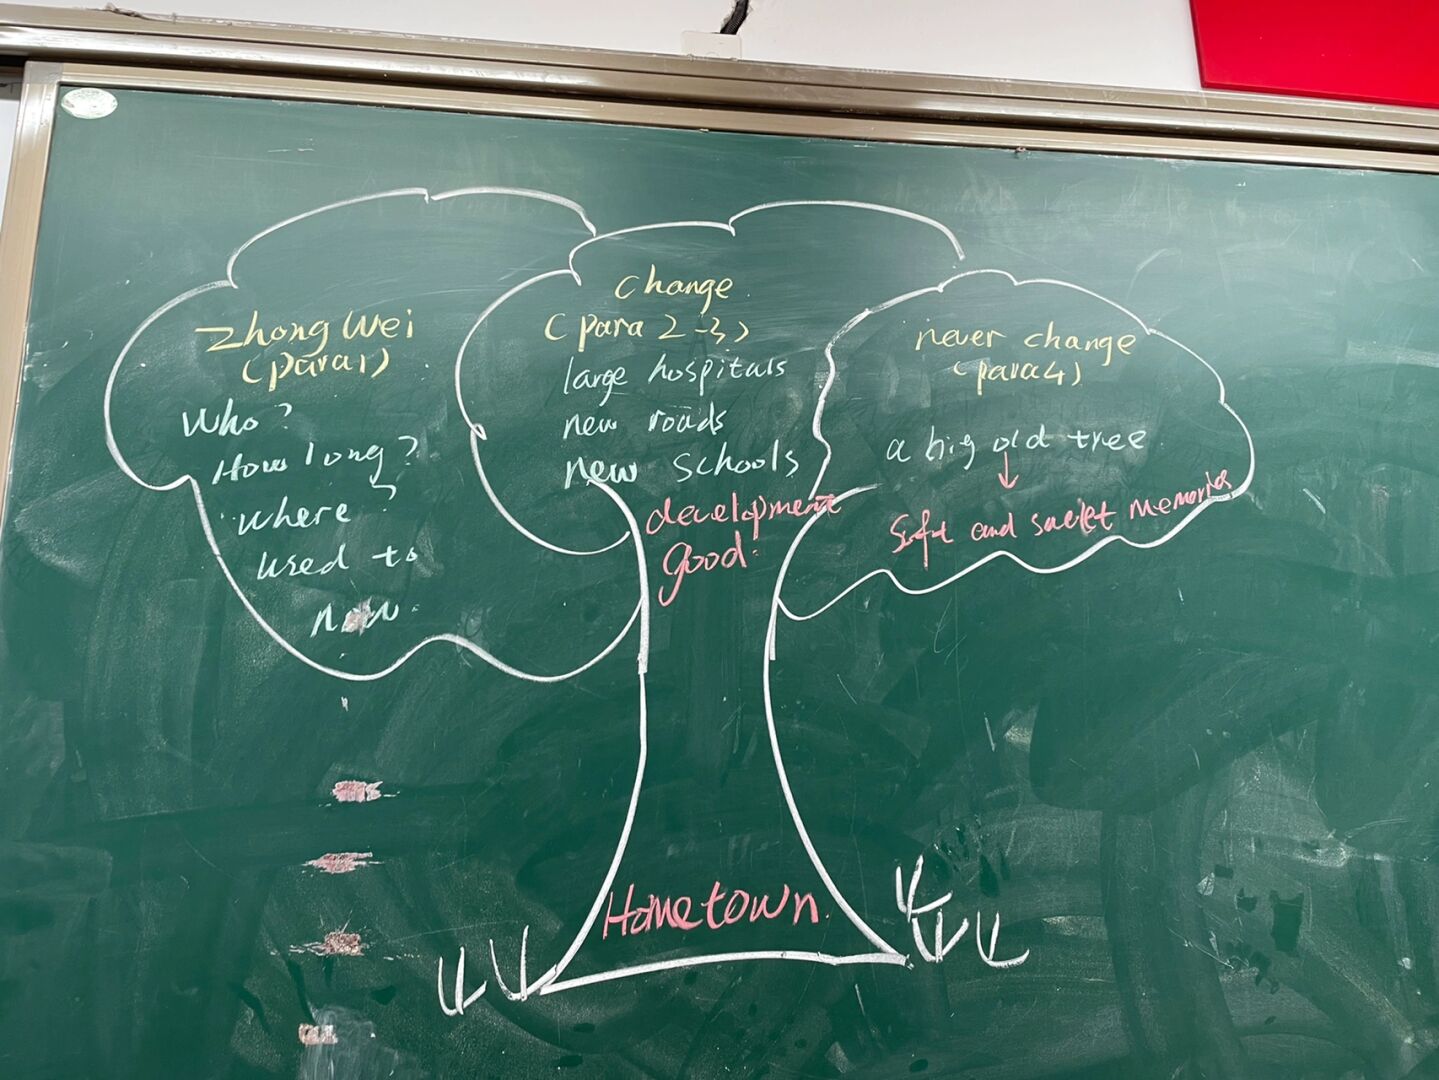 Zhong Wei
(para1)
Who?
How long?
where?
used to
now.
change
(para 2-3)
large hospitals
new roads
new schools
development
good.
never change
(para4)
a big old tree.
↓
Soft and sweet memories
Hometown.